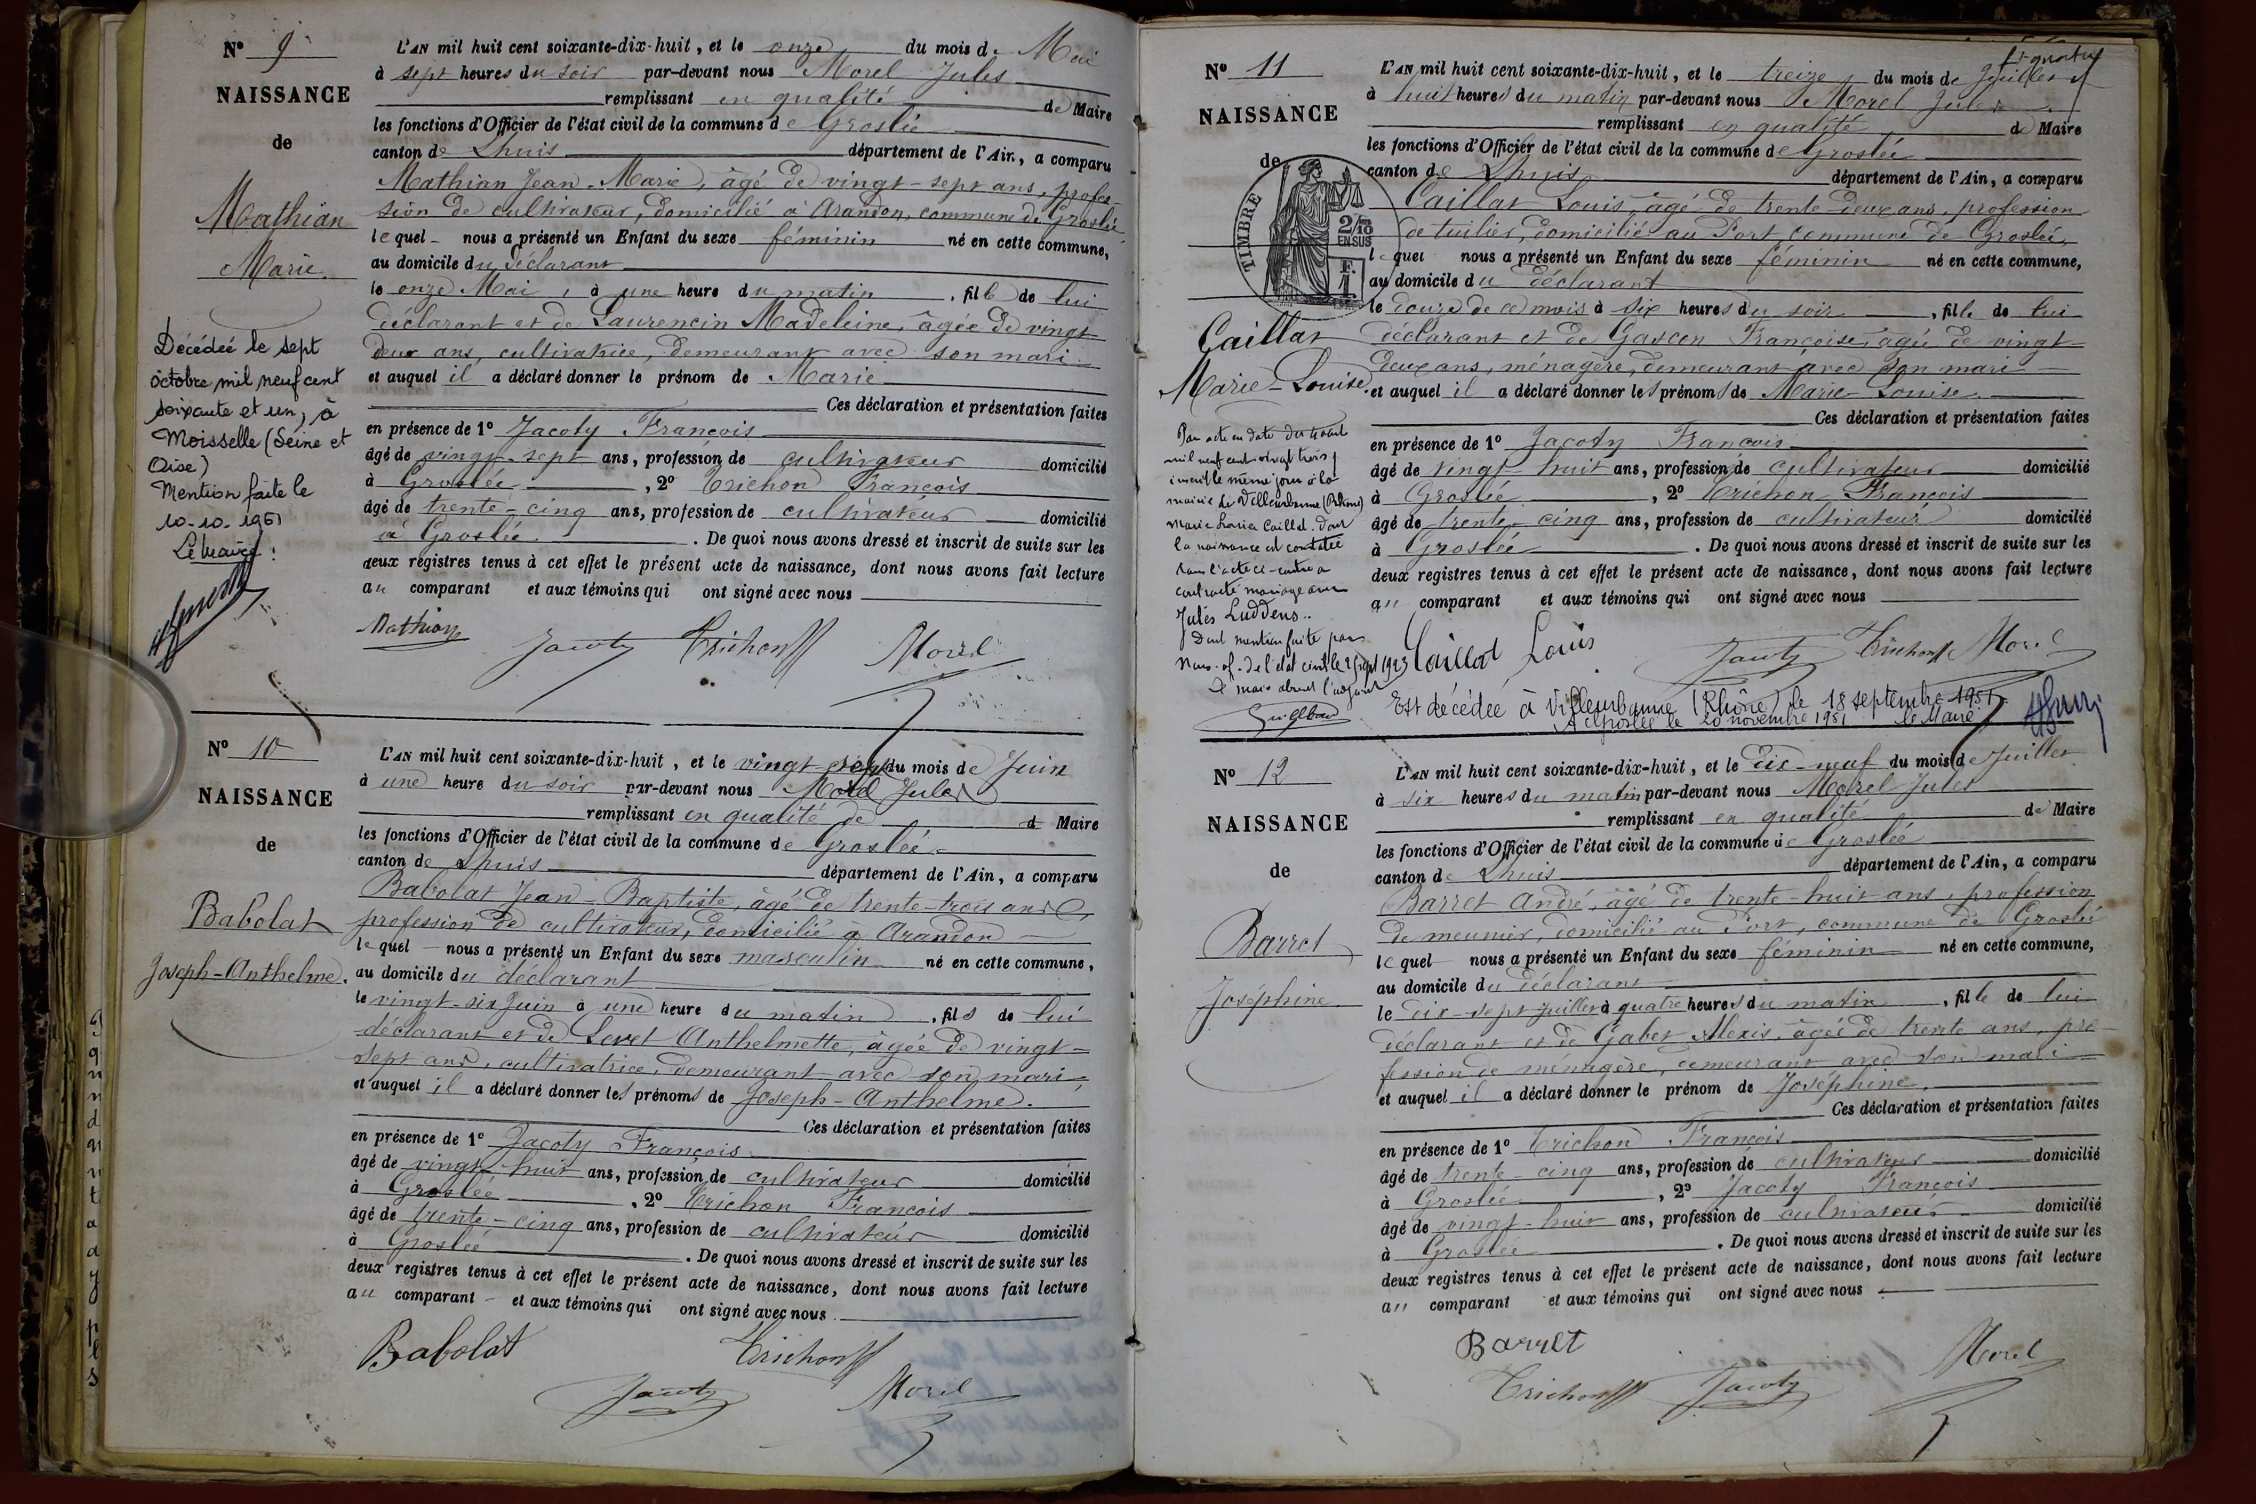 N° 9
NAISSANCE
de
Mathian
Marie
Décédée le sept
octobre mil neuf cent
soixante et un, à
Moisselle (Seine et
Oise)
Mention faite le
10-10-1961
Le Maire :
L'AN mil huit cent soixante-dix-huit, et le onze du mois de Mai
à sept heures du soir par-devant nous Morel Jules
remplissant en qualité de Maire
les fonctions d'Officier de l'état civil de la commune de Groslée
canton de Lhuis département de l'Ain, a comparu
Mathian Jean-Marie, âgé de vingt-sept ans, profes-
sion de cultivateur, domicilié à Arandon, commune de Groslée
lequel nous a présenté un Enfant du sexe féminin né en cette commune,
au domicile du déclarant
le onze Mai, à une heure du matin, fille de lui
déclarant et de Laurencin Madeleine, âgée de vingt
deux ans, cultivatrice, demeurant avec son mari
et auquel il a déclaré donner le prénom de Marie
Ces déclaration et présentation faites
en présence de 1° Jacoty François
âgé de vingt-sept ans, profession de cultivateur domicilié
à Groslée, 2° Trichon François
âgé de trente-cinq ans, profession de cultivateur domicilié
à Groslée. De quoi nous avons dressé et inscrit de suite sur les
deux registres tenus à cet effet le présent acte de naissance, dont nous avons fait lecture
au comparant et aux témoins qui ont signé avec nous
Mathian Jacoty Trichon Morel
N° 10
NAISSANCE
de
Babolat
Joseph-Anthelme.
L'AN mil huit cent soixante-dix-huit, et le vingt-sept du mois de Juin
à une heure du soir par-devant nous Morel Jules
remplissant en qualité de d Maire
les fonctions d'Officier de l'état civil de la commune de Groslée
canton de Lhuis département de l'Ain, a comparu
Babolat Jean-Baptiste, âgé de trente-trois ans,
profession de cultivateur, domicilié à Arandon
lequel nous a présenté un Enfant du sexe masculin né en cette commune,
au domicile du déclarant
le vingt-six Juin à une heure du matin, fils de lui
déclarant et de Levet Anthelmette, âgée de vingt-
sept ans, cultivatrice, demeurant avec son mari
et auquel il a déclaré donner les prénoms de Joseph-Anthelme.
Ces déclaration et présentation faites
en présence de 1° Jacoty François
âgé de vingt-huit ans, profession de cultivateur domicilié
à Groslée, 2° Trichon François
âgé de trente-cinq ans, profession de cultivateur domicilié
à Groslée. De quoi nous avons dressé et inscrit de suite sur les
deux registres tenus à cet effet le présent acte de naissance, dont nous avons fait lecture
au comparant et aux témoins qui ont signé avec nous
Babolat Trichon
Jacoty Morel
N° 11
NAISSANCE
de
TIMBRE
2/10
EN SUS
F.
1
Caillat
Marie-Louise.
Par acte en date du
mil neuf cent vingt trois,
inscrit le même jour à la
mairie de Villeurbanne (Rhône)
Marie Louise Caillat dont
la naissance est constatée
dans l'acte ci-contre a
contracté mariage avec
Jules Luddens..
Dont mention faite par
Nous of. de l'état civil le sept 1923
Le maire absent l'adjoint
L'AN mil huit cent soixante-dix-huit, et le treize du mois de Juillet
à huit heures du matin par-devant nous Morel Jules
remplissant en qualité de Maire
les fonctions d'Officier de l'état civil de la commune de Groslée
canton de Lhuis département de l'Ain, a comparu
Caillat Louis âgé de trente-deux ans, profession
de tuilier, domicilié au Port commune de Groslée,
lequel nous a présenté un Enfant du sexe féminin né en cette commune,
au domicile du déclarant
le douze de ce mois à six heures du soir, fille de lui
déclarant et de Gascon Françoise, âgée de vingt
deux ans, ménagère, demeurant avec son mari
et auquel il a déclaré donner les prénoms de Marie-Louise.
Ces déclaration et présentation faites
en présence de 1° Jacoty François
âgé de vingt-huit ans, profession de cultivateur domicilié
à Groslée, 2° Trichon François
âgé de trente-cinq ans, profession de cultivateur domicilié
à Groslée. De quoi nous avons dressé et inscrit de suite sur les
deux registres tenus à cet effet le présent acte de naissance, dont nous avons fait lecture
au comparant et aux témoins qui ont signé avec nous
Caillat Louis Jacoty Trichon Morel
Est décédée à Villeurbanne (Rhône) le 18 septembre 1951
A Groslée le 20 novembre 1951 le Maire
N° 12
NAISSANCE
de
Barret
Joséphine
L'AN mil huit cent soixante-dix-huit, et le dix-neuf du mois de Juillet
à six heures du matin par-devant nous Morel Jules
remplissant en qualité de Maire
les fonctions d'Officier de l'état civil de la commune de Groslée
canton de Lhuis département de l'Ain, a comparu
Barret André, âgé de trente-huit ans, profession
de meunier, domicilié au Port, commune de Groslée
lequel nous a présenté un Enfant du sexe féminin né en cette commune,
au domicile du déclarant
le dix-sept Juillet à quatre heures du matin, fille de lui
déclarant et de Gabet Alexis, âgée de trente ans, pro-
fession de ménagère, demeurant avec son mari
et auquel il a déclaré donner le prénom de Joséphine.
Ces déclaration et présentation faites
en présence de 1° Trichon François
âgé de trente-cinq ans, profession de cultivateur domicilié
à Groslée, 2° Jacoty François
âgé de vingt-huit ans, profession de cultivateur domicilié
à Groslée. De quoi nous avons dressé et inscrit de suite sur les
deux registres tenus à cet effet le présent acte de naissance, dont nous avons fait lecture
au comparant et aux témoins qui ont signé avec nous
Barret Morel
Trichon Jacoty